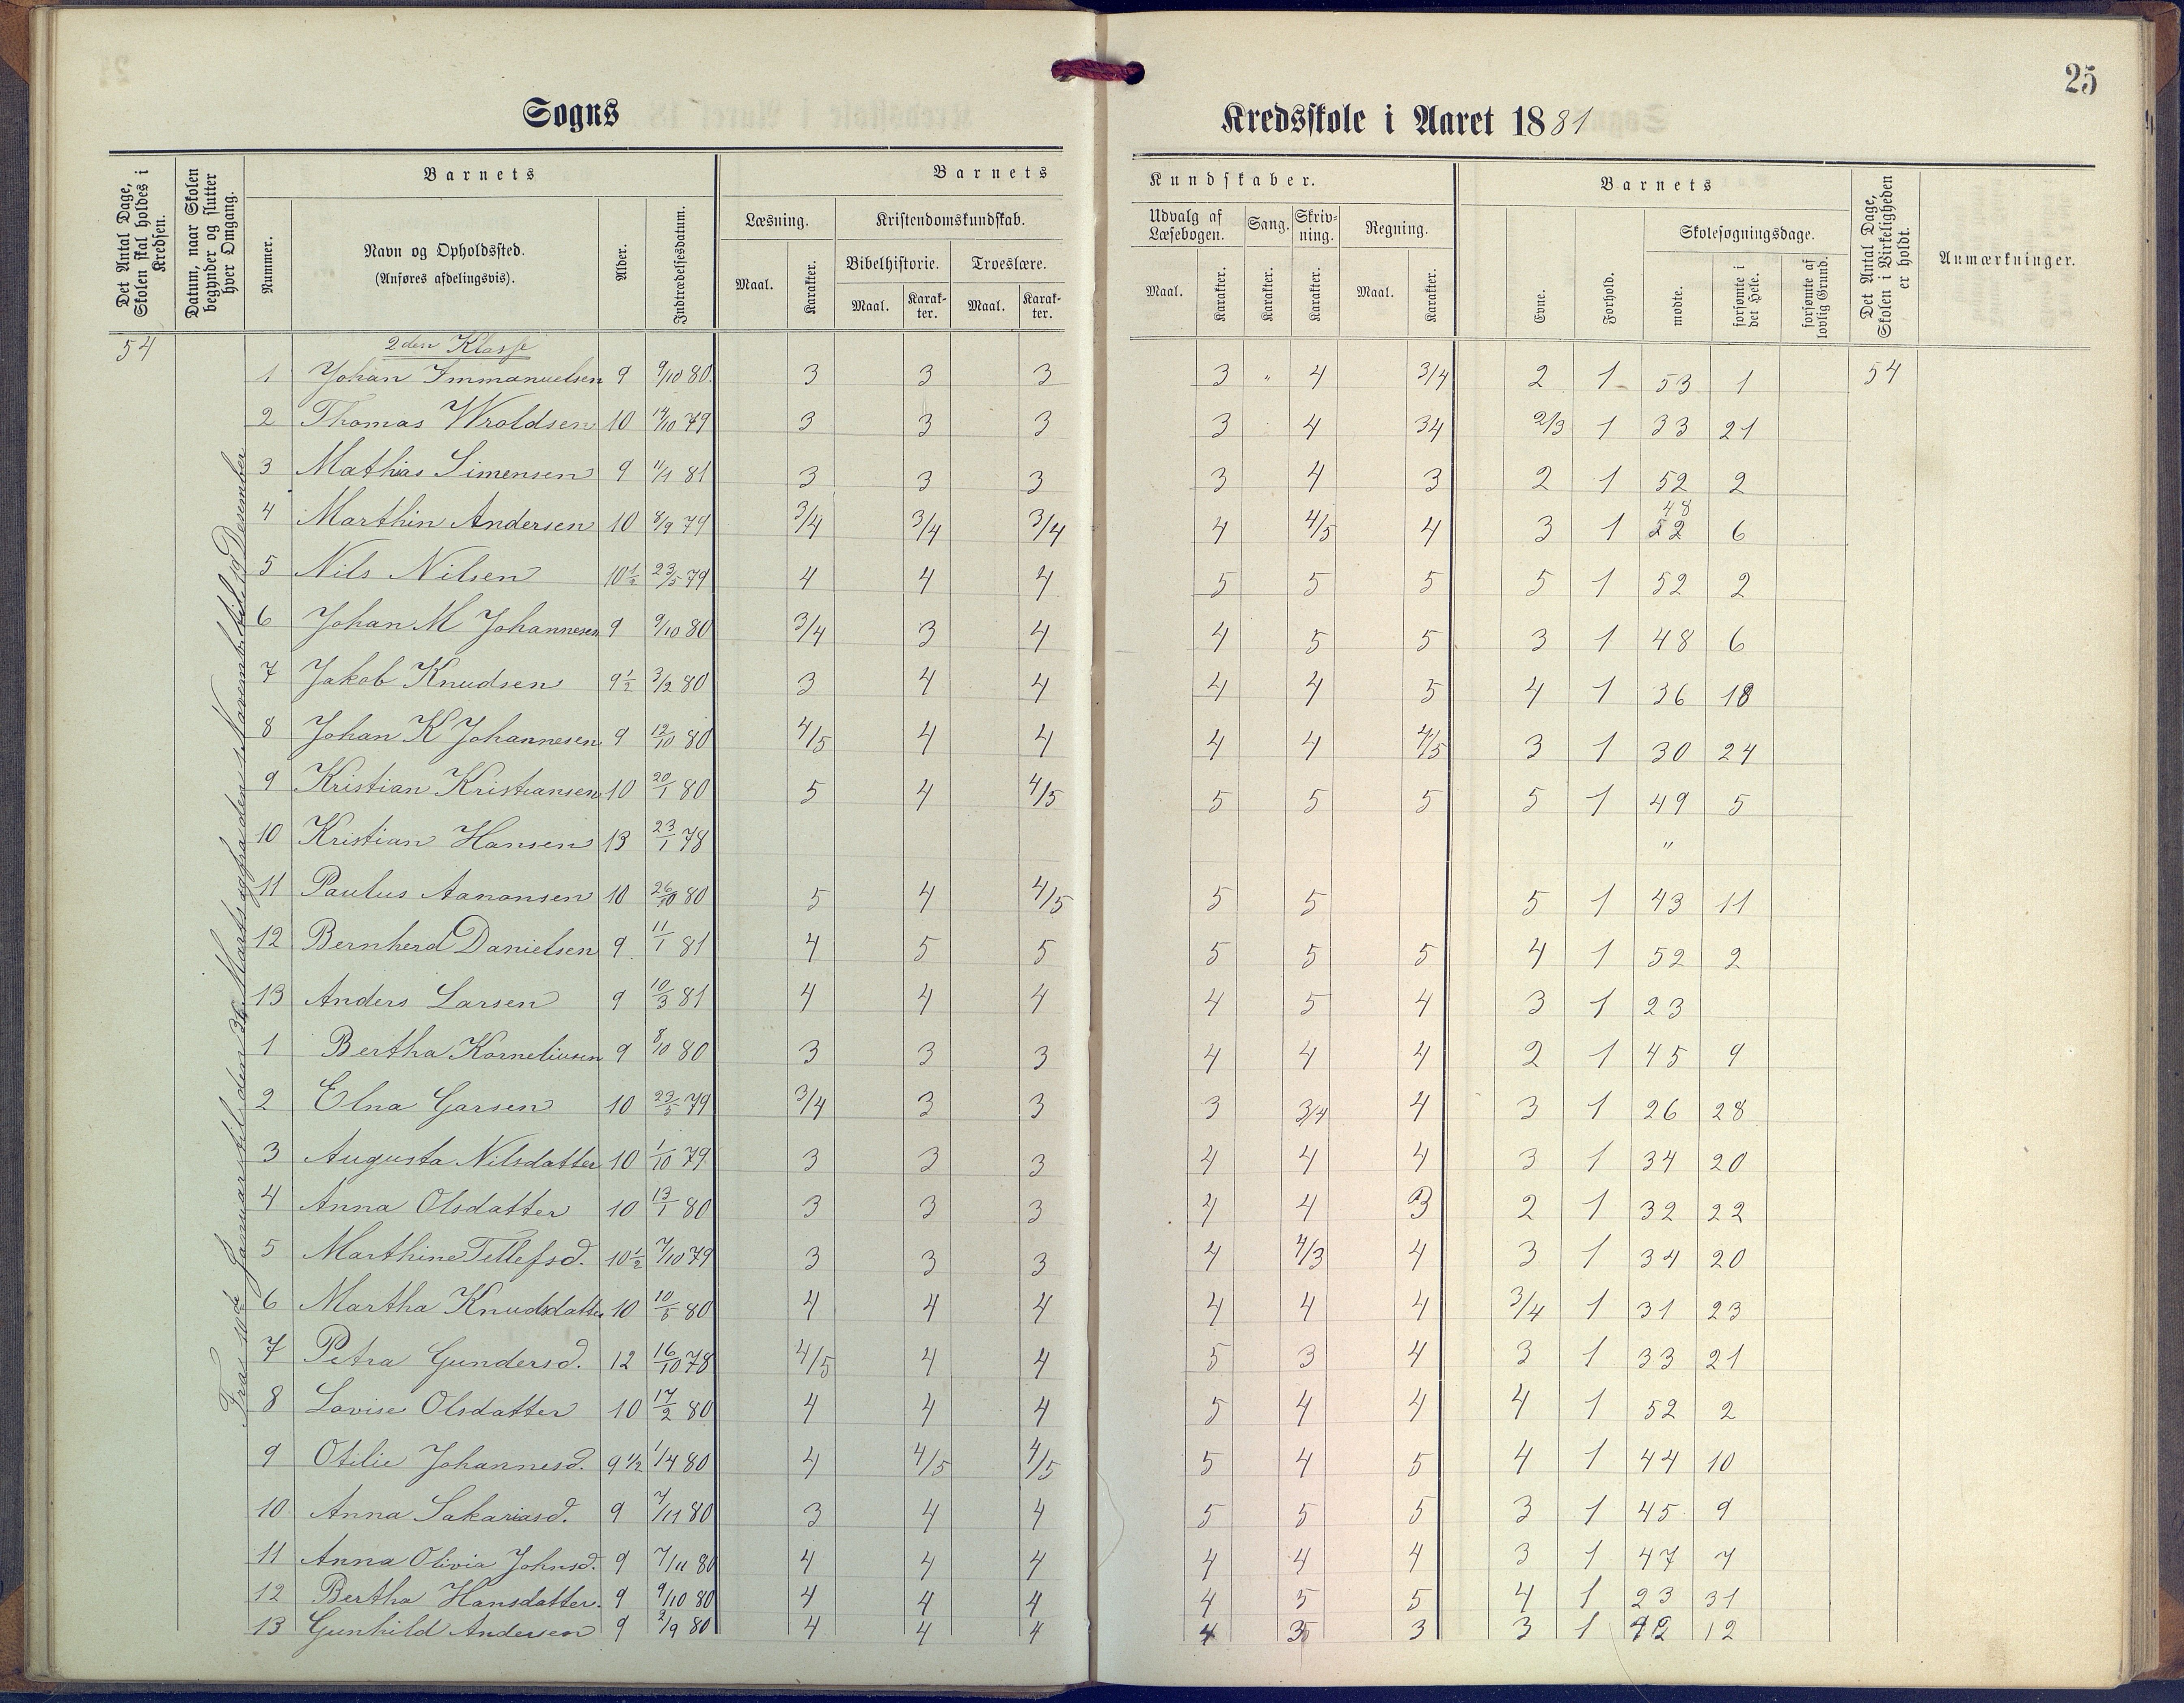 25
Sogns
Kredsskole i Aaret 1881
Det Antal Dage, Skolen skal holdes i Kredsen.
Datum, naar Skolen begynder og slutter hver Omgang.
Nummer.
Barnets
Navn og Opholdssted.
(Anføres afdelingsvis).
Alder.
Indtrædelsesdatum.
Barnets
Læsning.
Maal.
Karakter.
Kristendomskundskab.
Bibelhistorie.
Maal.
Karakter.
Troeslære.
Maal.
Karakter.
Kundskaber.
Udvalg af Læsebogen.
Maal.
Karakter.
Sang.
Karakter.
Skrivning.
Karakter.
Regning.
Maal.
Karakter.
Barnets
Evne.
Forhold.
Skolesøgningsdage.
mødte.
forsømte i det Hele.
forsømte af lovlig Grund.
Det Antal Dage, Skolen i Virkeligheden er holdt.
Anmærkninger.
54
2den Klasse
Fra 10de Januar til den 26 Marts og fra den Novemb. til 19 Desember
1 Johan Immanuelsen 9 9/10 80. 3 3 3 3 " 4 3/4 2 1 53 1 54
2 Thomas Wroldsen 10 14/10 79 3 3 3 3 4 34 2/3 1 33 21
3 Mathias Simensen 9 11/1 81 3 3 3 3 4 3 2 1 52 2
4 Marthin Andersen 10 8/9 79 3/4 3/4 3/4 4 4/5 4 3 1 48 52 6
5 Nils Nilsen 10 1/2 23/5 79 4 4 4 5 5 5 5 1 52 2
6 Johan M Johannesen 9 9/10 80 3/4 3 4 4 5 5 3 1 48 6
7 Jakob Knudsen 9 1/2 3/2 80 3 4 4 4 4 5 4 1 36 18
8 Johan K Johannesen 9 12/10 80 4/5 4 4 4 4 4/5 3 1 30 24
9 Kristian Kristiansen 10 20/1 80 5 4 4/5 5 5 5 5 1 49 5
10 Kristian Hansen 13 23/1 78 "
11 Paulus Aanonsen 10 26/10 80 5 4 4/5 5 5 5 1 43 11
12 Bernherd Danielsen 9 11/1 81 4 5 5 5 5 5 4 1 52 2
13 Anders Larsen 9 10/3 81 4 4 4 4 5 4 3 1 23
1 Bertha Korneliusen 9 8/10 80 3 3 3 4 4 4 2 1 45 9
2 Elna Garsen 10 23/5 79 3/4 3 3 3 3/4 4 3 1 26 28
3 Augusta Nilsdatter 10 1/10 79 3 3 3 4 4 4 3 1 34 20
4 Anna Olsdatter 10 13/1 80 3 3 3 4 4 3 2 1 32 22
5 Marthine Tellefsd. 10 1/2 7/10 79 3 3 3 4 4/3 4 3 1 34 20
6 Martha Knudsdatter 10 10/5 80 4 4 4 4 4 4 3/4 1 31 23
7 Petra Gundersd. 12 16/10 78 4/5 4 4 5 3 4 3 1 33 21
8 Lovise Olsdatter 10 17/2 80 4 4 4 5 4 4 4 1 52 2
9 Otilie Johannesd. 9 1/2 1/4 80 4 4/5 4/5 5 4 5 4 1 44 10
10 Anna Sakariasd. 9 7/11 80 3 4 4 5 5 5 3 1 45 9
11 Anna Olivia Johnsd. 9 7/11 80 4 4 4 4 4 4 3 1 47 7
12 Bertha Hansdatter. 9 9/10 80 4 4 4 4 5 5 4 1 23 31
13 Gunhild Andersen 9 2/9 80 4 4 4 4 3 3 1 42 12